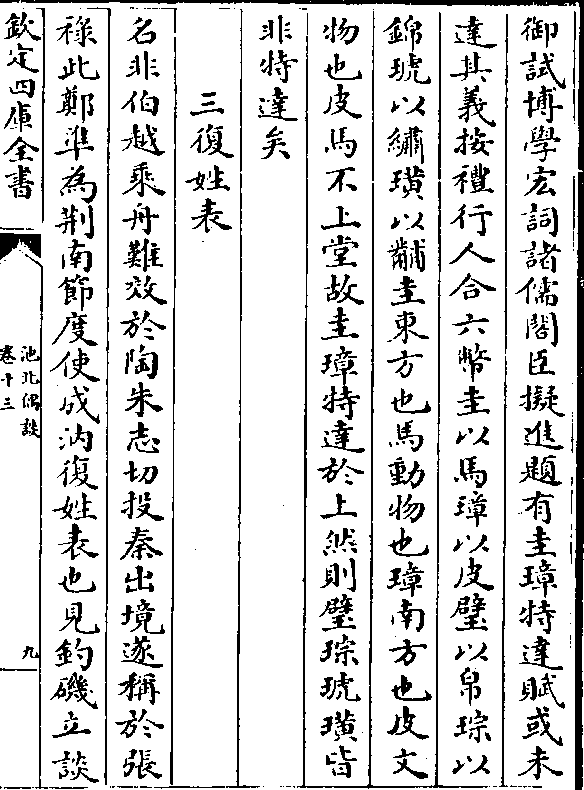 御試博學宏詞諸儒閣臣擬進題有圭璋特達賦或未
達其義按禮行人合六幣圭以馬璋以皮璧以帛琮以
錦琥以繡璜以黼圭東方也馬動物也璋南方也皮文
物也皮馬不上堂故圭璋特達於上然則璧琮琥璜皆
非特達矣
三復姓表
名非伯越乘舟難效於陶朱志切投秦出境遂稱於張
祿此鄭準為荆南節度使成汭復姓表也見釣磯立談
欽定四庫全書
池北偶談
卷十三
九